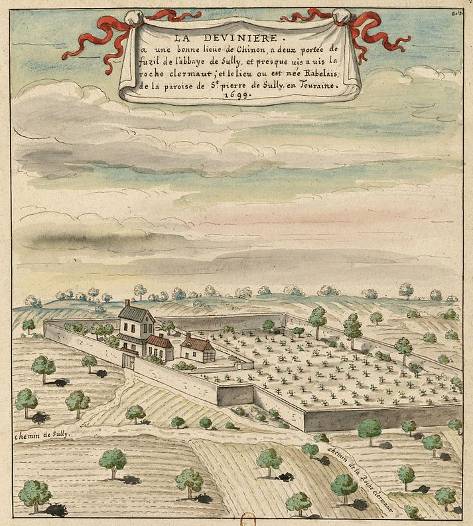 LA DEVINIERE.
a une bonne lieue de Chinon, a deux portée de
fuzil de l'abbaye de Sully, et presque uis a uis la
roche clermaut, et le lieu ou est née Rabelais,
de la paroise de St. pierre de Sully, en Touraine.
1699.
chemin de Sully.
chemin de la